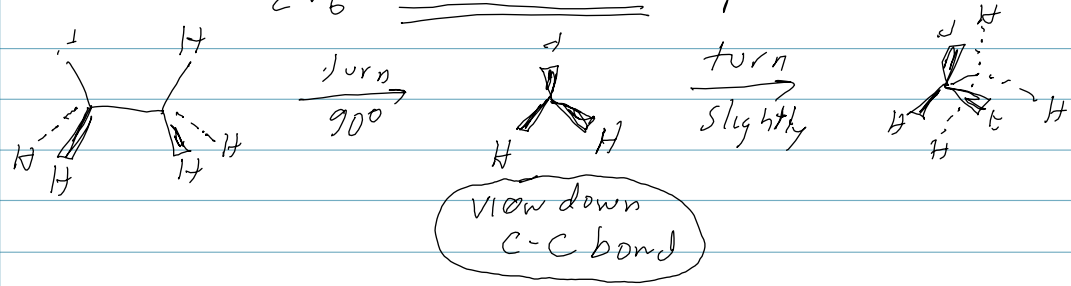 H
H H H H
turn
90°
H
H H
turn
slightly
H
H H
H H
view down
C-C bond